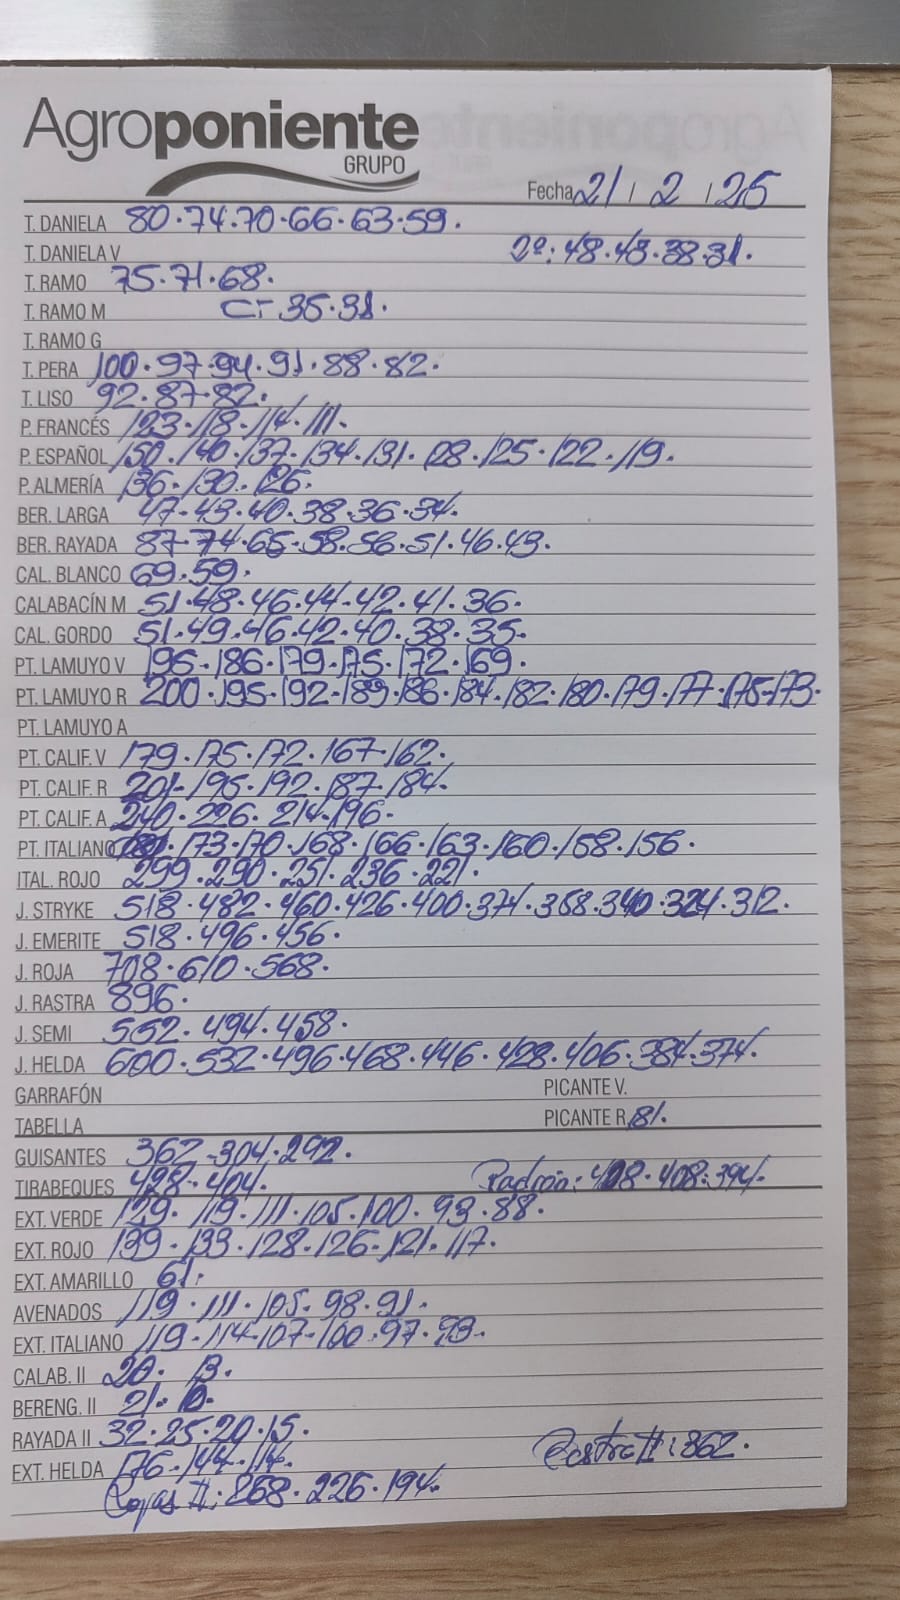 Agroponiente
GRUPO
Fecha 21 / 2 / 25
T. DANIELA 80.74.70.66.63.59.
T. DANIELA V 2ª: 48.43.38.31.
T. RAMO 75.71.68.
T. RAMO M C- 35.31.
T. RAMO G
T. PERA 100.97.94.91.88.82.
T. LISO 92.87.82.
P. FRANCÉS 123.118.114.111.
P. ESPAÑOL 150.140.137.134.131.128.125.122.119.
P. ALMERÍA 136.130.126.
BER. LARGA 47.43.40.38.36.34.
BER. RAYADA 87.74.65.58.56.51.46.43.
CAL. BLANCO 69.59.
CALABACÍN M 51.48.46.44.42.41.36.
CAL. GORDO 51.49.46.42.40.38.35.
PT. LAMUYO V 195.186.179.175.172.169.
PT. LAMUYO R 200.195.192.189.186.184.182.180.179.177.175.173.
PT. LAMUYO A
PT. CALIF. V 179.175.172.167.162.
PT. CALIF. R 201.195.192.187.184.
PT. CALIF. A 240.226.214.196.
PT. ITALIANO 173.170.168.166.163.160.158.156.
ITAL. ROJO 299.290.251.236.221.
J. STRYKE 518.482.460.426.400.374.358.340.324.312.
J. EMERITE 518.496.456.
J. ROJA 708.610.568.
J. RASTRA 896.
J. SEMI 552.494.458.
J. HELDA 600.532.496.468.446.428.406.384.374.
GARRAFÓN PICANTE V.
TABELLA PICANTE R. 181.
GUISANTES 362.304.292.
TIRABEQUES 428.404. Padrón: 408.394.
EXT. VERDE 129.119.111.105.100.93.88.
EXT. ROJO 139.133.128.126.121.117.
EXT. AMARILLO 61.
AVENADOS 119.111.105.98.91.
EXT. ITALIANO 119.114.107.100.97.93.
CALAB. II 20.13.
BERENG. II 21.10.
RAYADA II 32.25.20.15.
EXT. HELDA 176.144.114. Rastra II: 362.
Rojas II: 268.226.194.